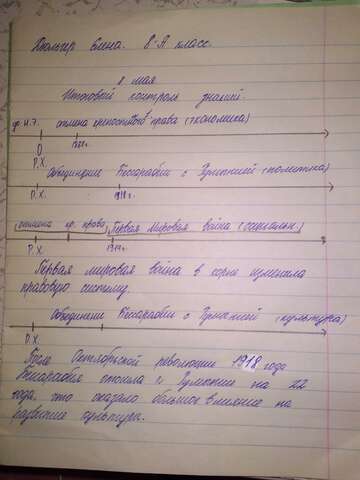 Дюльгер Елена. 8-А класс.
8 мая
Итоговый контроль знаний.
до н.э. отмена крепостного права (экономика)
0
Р.Х. 1861г.
Объединение Бессарабии с Румынией (политика)
Р.Х. 1918г.
(отмена кр. права) Первая мировая война (социальн.)
Р.Х. 1914г.
Первая мировая война в корне изменила
правовую систему.
Объединение Бессарабии с Румынией (культура)
Р.Х.
После Октябрьской революции 1918 года
Бессарабия отошла к Румынии на 22
года, что оказало большое влияние на
развитие культуры.